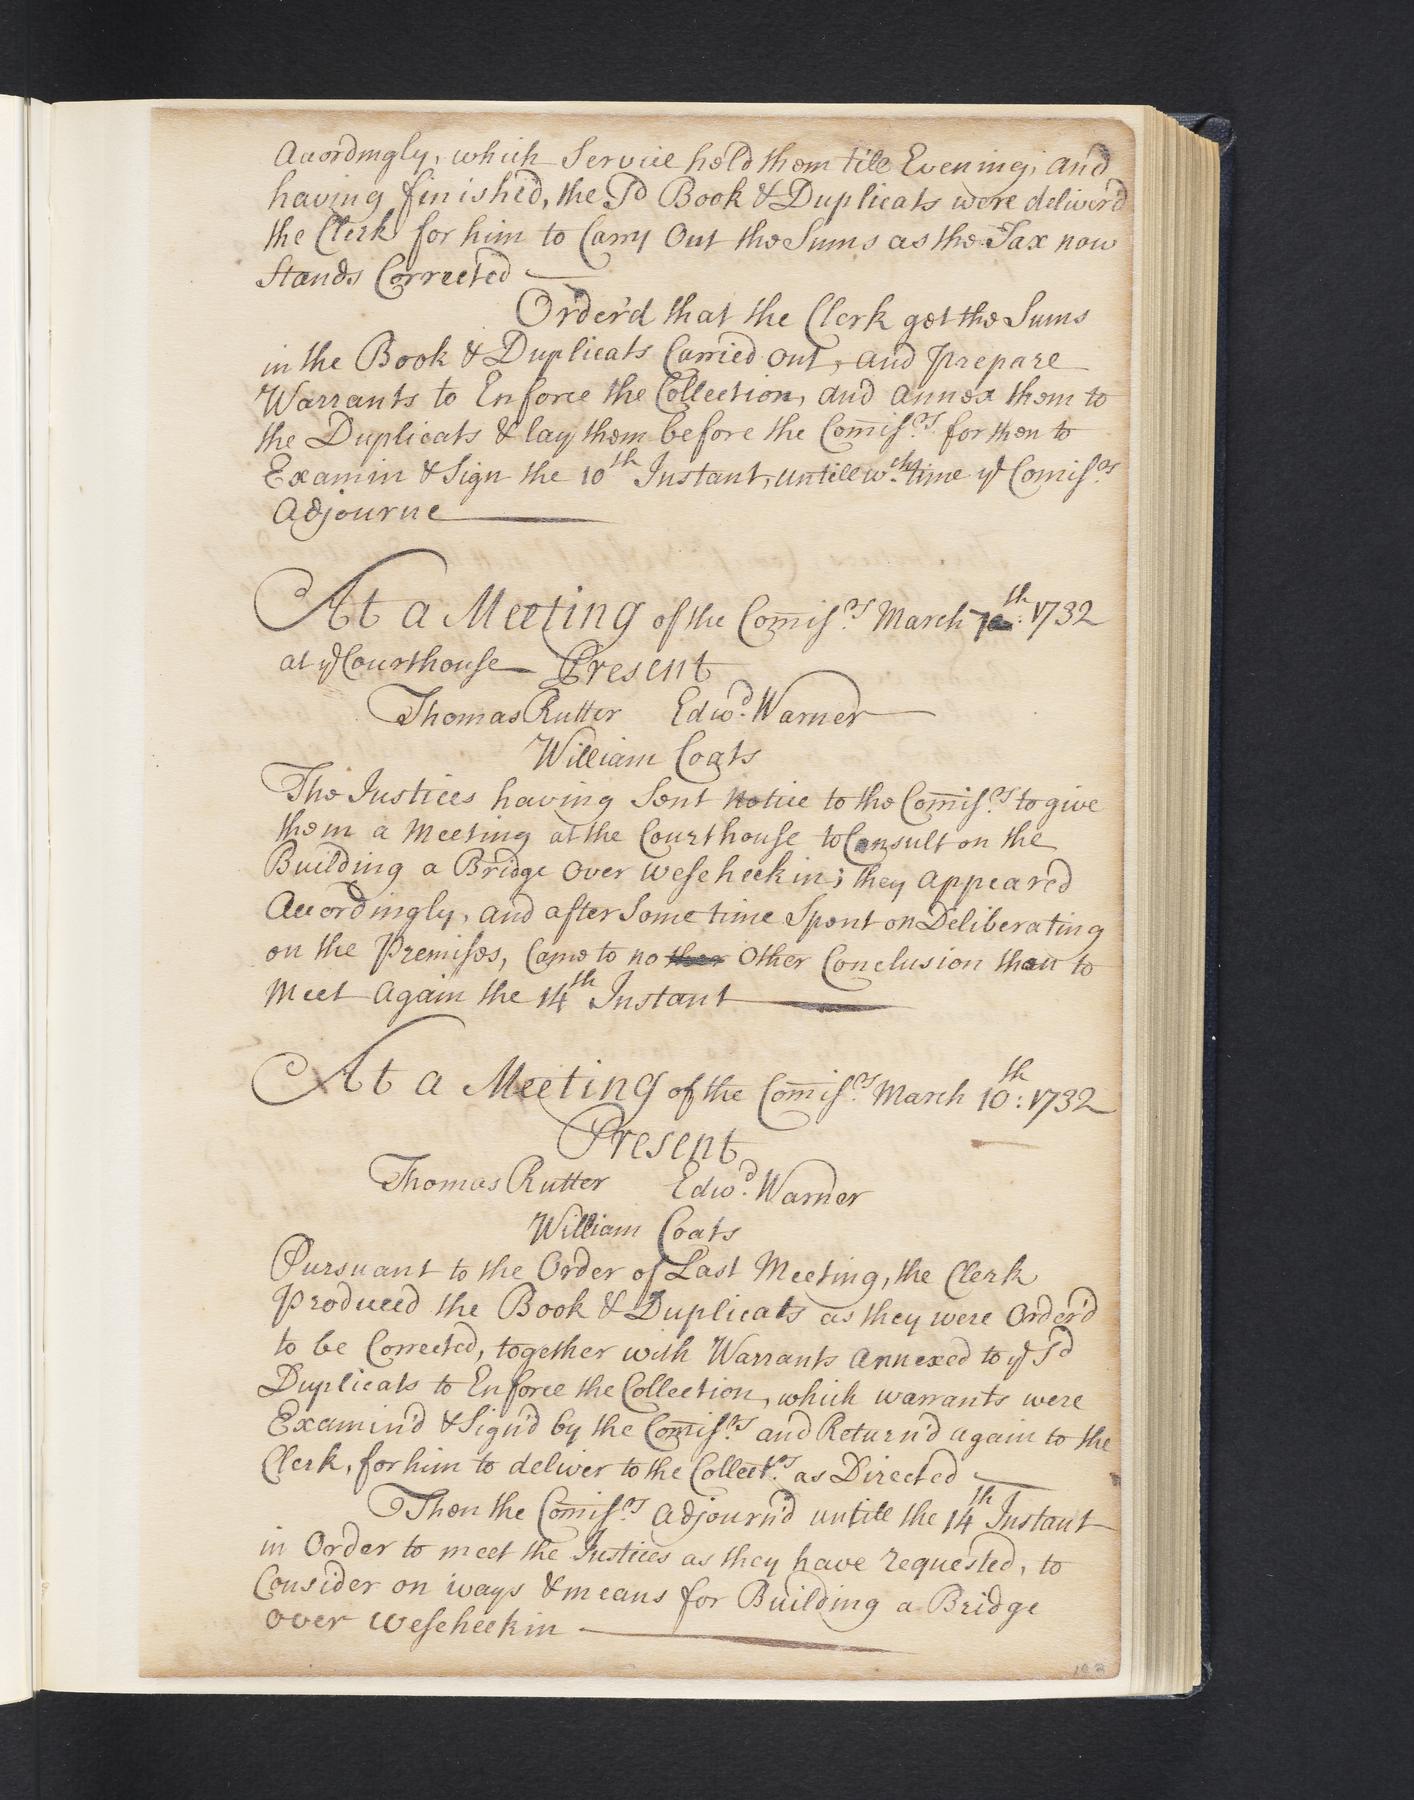 Accordingly, which Service held them till Evening; and
having finish'd, the Sd Book & Duplicats were deliver'd
the Clerk for him to Carry Out the Sums as the Tax now
Stands Corrected
Order'd that the Clerk get the Sums
in the Book & Duplicats Carried out, and Prepare
Warrants to Enforce the Collection, and annex them to
the Duplicats & lay them before the Comiss.rs for them to
Examin & Sign the 10th Instant, untill wch time ye Comiss.rs
Adjourne
At a Meeting of the Comiss.rs March 7th: 1732
at ye Courthouse Present
Thomas Rutter Edwd. Warner
William Coats
The Justices having Sent Notice to the Comiss.rs to give
them a Meeting at the Courthouse to Consult on the
Building a Bridge Over Weseheckin; they appeared
Accordingly, and after Some time Spent on Deliberating
on the Premises, Came to no ther Other Conclusion than to
Meet Again the 14th Instant
At a Meeting of the Comiss.rs March 10th: 1732
Present
Thomas Rutter Edwd. Warner
William Coats
Pursuant to the Order of Last Meeting, the Clerk
Produced the Book & Duplicats as they were Order'd
to be Corrected, together with Warrants Annexed to ye Sd
Duplicats to Enforce the Collection, which warrants were
Examin'd & Sign'd by the Comiss.rs and Return'd again to the
Clerk, for him to deliver to the Collect.rs as Directed
Then the Comiss.rs Adjourn'd untill the 14th Instant
in Order to meet the Justices as they have requested, to
Consider on ways & means for Building a Bridge
Over Weseheckin